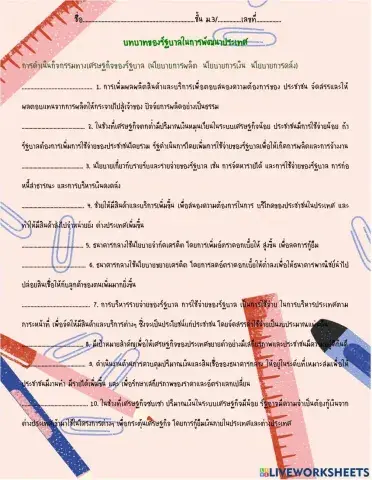 ชื่อ.......................................................ชั้น ม.3/.............เลขที่..............
บทบาทของรัฐบาลในการพัฒนาประเทศ
การดำเนินกิจกรรมทางเศรษฐกิจของรัฐบาล (นโยบายการผลิต นโยบายการเงิน นโยบายการคลัง)
.............................. 1. การเพิ่มผลผลิตสินค้าและบริการเพื่อตอบสนองความต้องการของ ประชาชน จัดสรรและให้
ผลตอบแทนจากการผลิตให้กระจายไปสู่เจ้าของ ปัจจัยการผลิตอย่างเป็นธรรม
.............................. 2. ในช่วงที่เศรษฐกิจตกต่ำมีปริมาณเงินหมุนเวียนในระบบเศรษฐกิจน้อย ประชาชนมีการใช้จ่ายน้อย ถ้า
รัฐบาลต้องการเพิ่มการใช้จ่ายของประชาชนโดยรวม รัฐดำเนินการโดยเพิ่มการใช้จ่ายของรัฐบาลเพื่อให้เกิดการผลิตและการจ้างงาน
.............................. 3. นโยบายเกี่ยวกับรายรับและรายจ่ายของรัฐบาล เช่น การจัดหารายได้ และการใช้จ่ายของรัฐบาล การก่อ
หนี้สาธารณะ และการบริหารเงินคงคลัง
.............................. 4. ช่วยให้มีสินค้าและบริการเพิ่มขึ้น เพื่อสนองความต้องการในการ บริโภคของประชาชนในประเทศ และ
ทำให้มีสินค้าส่งไปจำหน่ายยัง ต่างประเทศเพิ่มขึ้น
.............................. 5. ธนาคารกลางใช้นโยบายจำกัดเครดิต โดยการเพิ่มอัตราดอกเบี้ยให้ สูงขึ้น เพื่อลดการกู้ยืม
.............................. 6. ธนาคารกลางใช้นโยบายขยายเครดิต โดยการลดอัตราดอกเบี้ยให้ต่ำลงเพื่อให้ธนาคารพาณิชย์นำไป
ปล่อยสินเชื่อให้กับลูกค้าของตนเพิ่มมากยิ่งขึ้น
.............................. 7. การบริหารรายจ่ายของรัฐบาล การใช้จ่ายของรัฐบาล เป็นการใช้จ่าย ในการบริหารประเทศตาม
ภาระหน้าที่ เพื่อจัดให้มีสินค้าและบริการต่างๆ ซึ่งจะเป็นประโยชน์แก่ประชาชน โดยจัดสรรค่าใช้จ่ายเป็นงบประมาณแผ่นดิน
.............................. 8. มีเป้าหมายสำคัญเพื่อให้เศรษฐกิจของประเทศขยายตัวอย่างมีเสถียรภาพและประชาชนมีความอยู่ดีกินดี
.............................. 9. ดำเนินงานด้านการควบคุมปริมาณเงินและสินเชื่อของธนาคารกลาง ให้อยู่ในระดับที่เหมาะสมเพื่อให้
ประชาชนมีงานทำ มีรายได้เพิ่มขึ้น และ เพื่อรักษาเสถียรภาพของราคาและอัตราแลกเปลี่ยน
.............................. 10. ในช่วงที่เศรษฐกิจซบเซา ปริมาณเงินในระบบเศรษฐกิจมีน้อย รัฐบาลมีความจำเป็นต้องกู้เงินจาก
ต่างประเทศเข้ามาใช้ในโครงการต่างๆ เพื่อกระตุ้นเศรษฐกิจ โดยการกู้ยืมเงินภายในประเทศและต่างประเทศ
LIVEWORKSHEETS